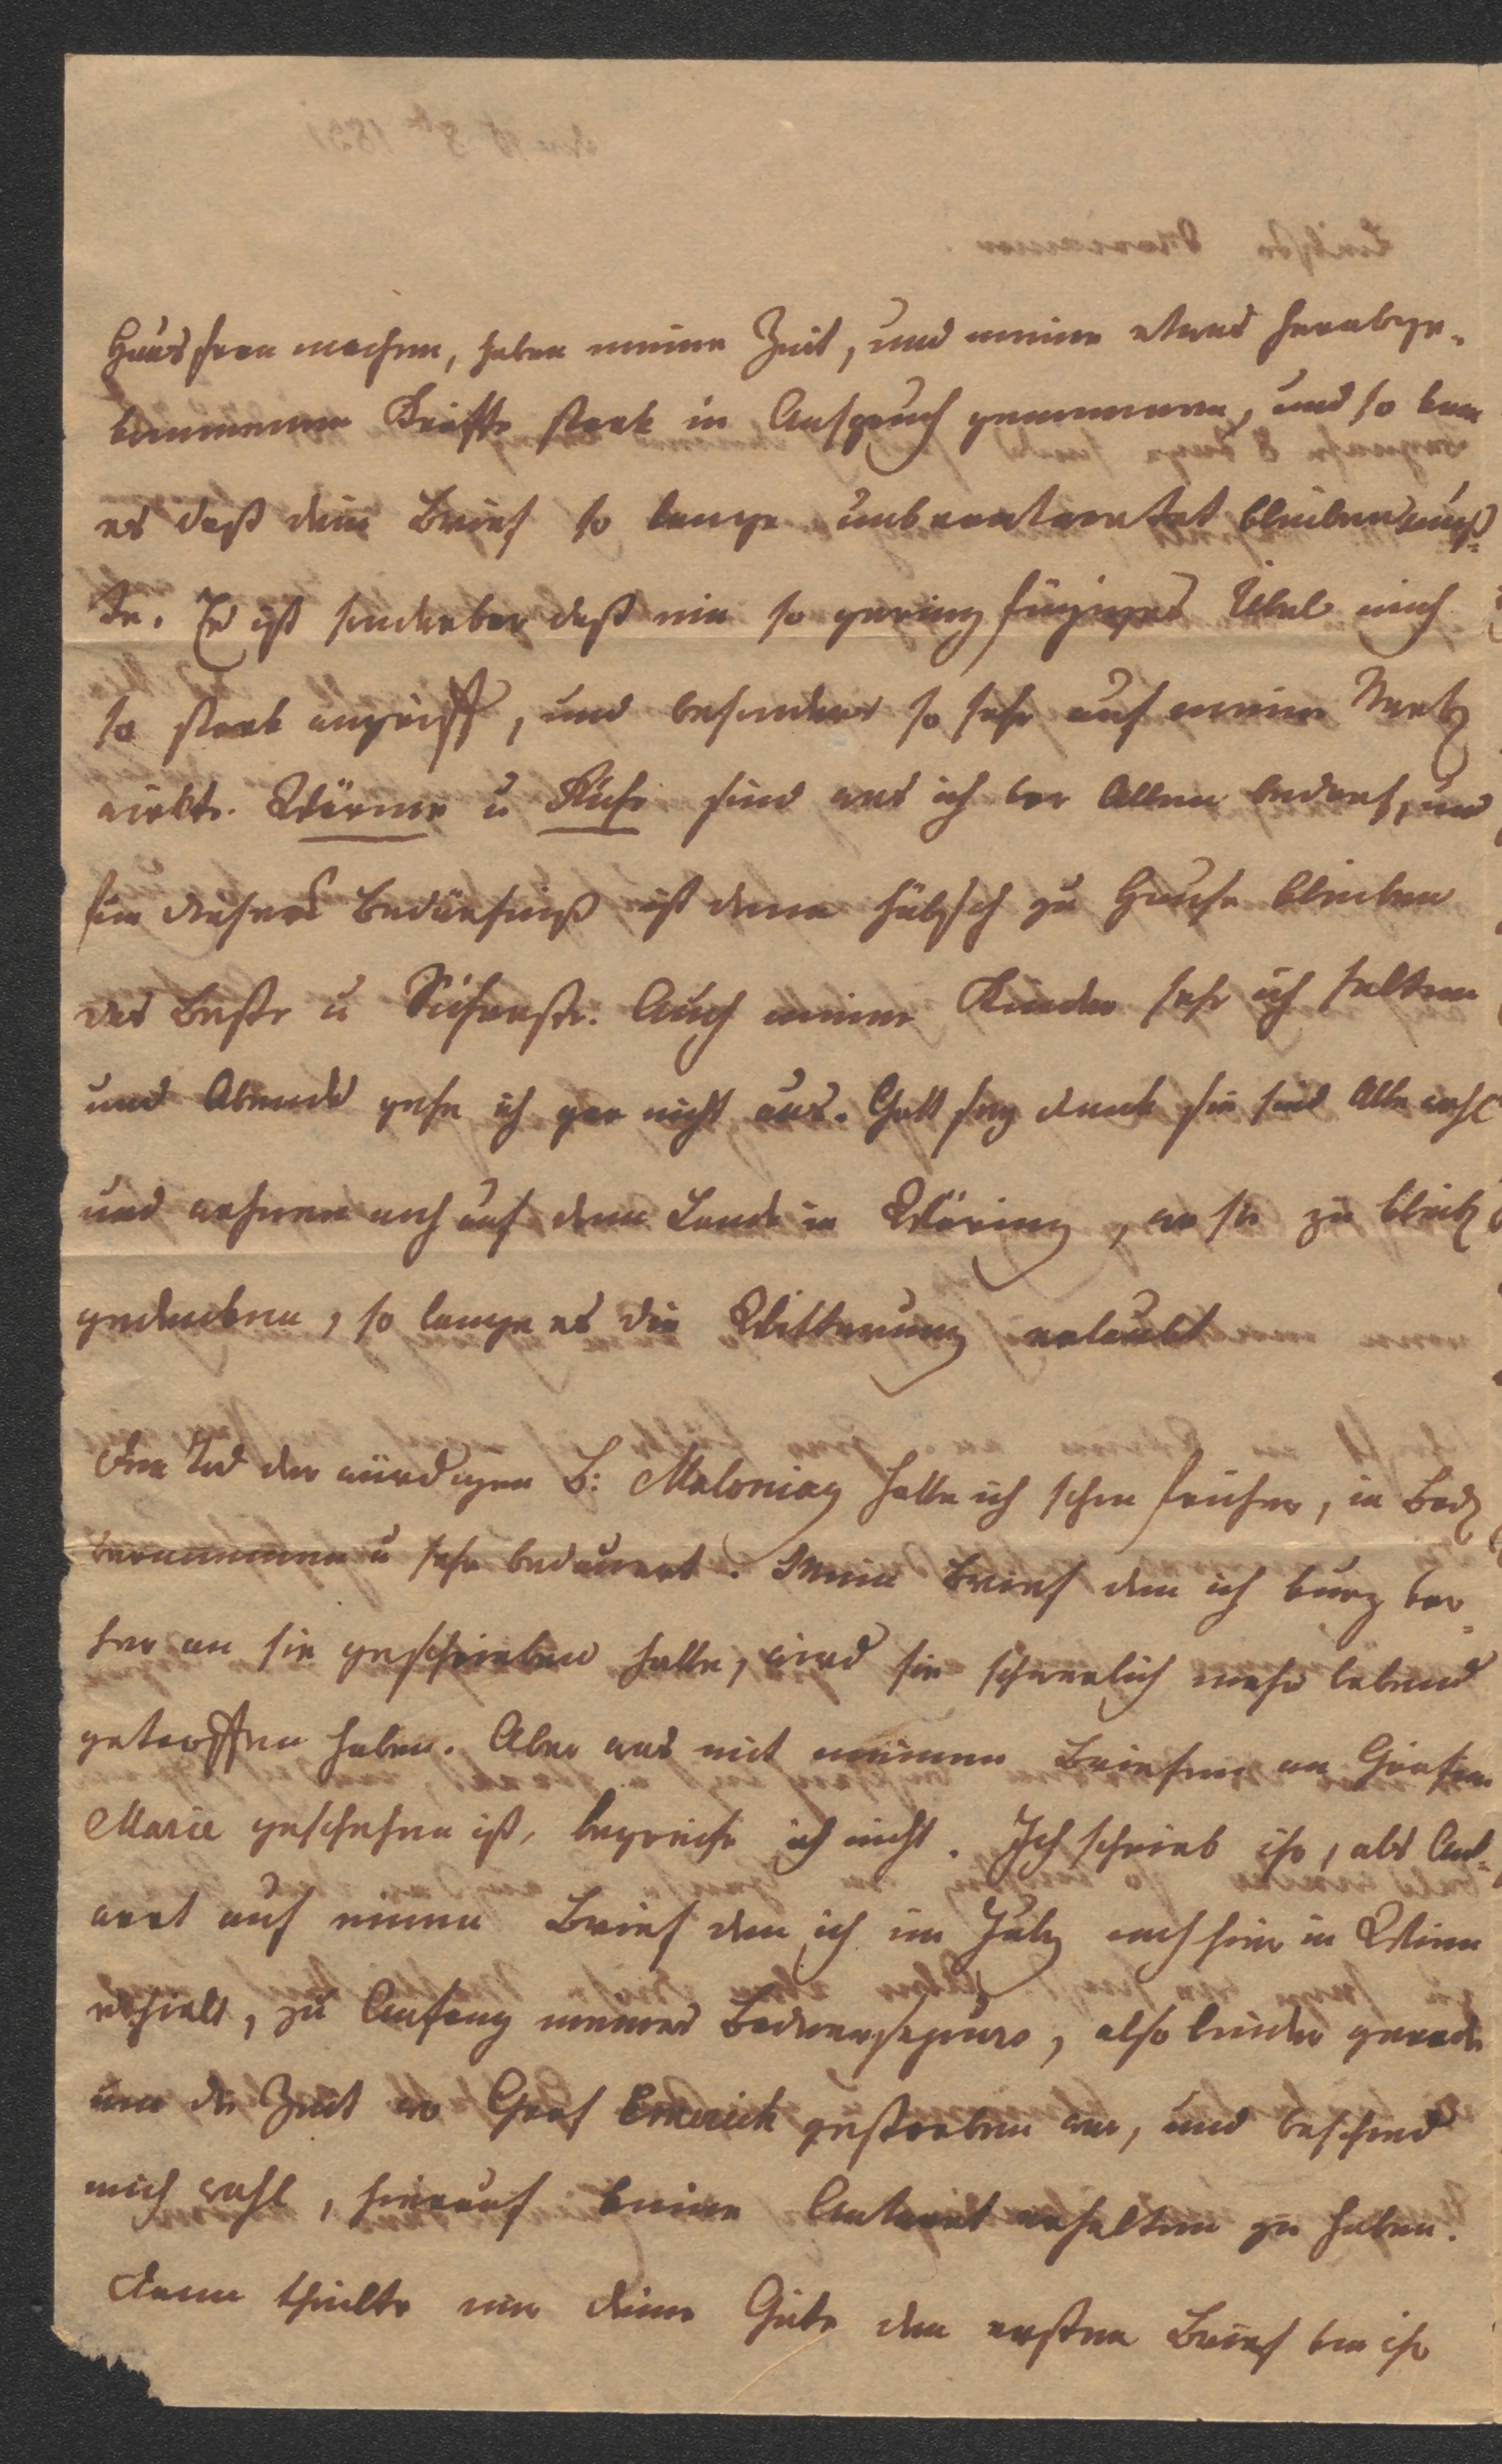 Hausfrau machen, haben meine Zeit, und meine etwas herabge-
kommenen Kräfte stark in Anspruch genommen, und so kam
es daß dein Brief so lange unbeantwortet bleiben muß-
te. Es ist sonderbar daß ein so gering fügiges Übel mich
so stark angriff, und besonders so sehr auf meine
wirkte. Wärme u Ruhe sind was ich vor Allem bedarf, und
für dieses Bedürfniß ist denn hübsch zu Hause bleiben
das Beste u Sicherste. Auch meine Kinder sehe ich selten
und Abends gehe ich gar nicht aus. Gott sey dank sie sind Alle wohl
und wohnen noch auf dem Lande in Wäring, wo sie zu bleiben
gedenken, so lange es die Witterung erlaubt
Den Tod der würdigen B: Maloniay hatte ich schon früher, in Baden
vernommen u sehr bedauert. Mein Brief den ich kurz vor-
her an sie geschrieben hatte, wird sie schwerlich mehr lebend
getroffen haben. Aber was mit meinen Briefen an Gräfin
Marie geschehen ist, begreife ich nicht. Ich schrieb ihr, als Ant-
wort auf einen Brief den ich im July noch hier in Wien
erhielt, zu Anfang meines Badneraufenthalts, also leider gerade
um die Zeit wo Graf Emerich gestorben war, und beschied
mich wohl, hierauf keine Antwort erhalten zu haben.
Dann theilte mir deine Güte den ersten Brief von ihr